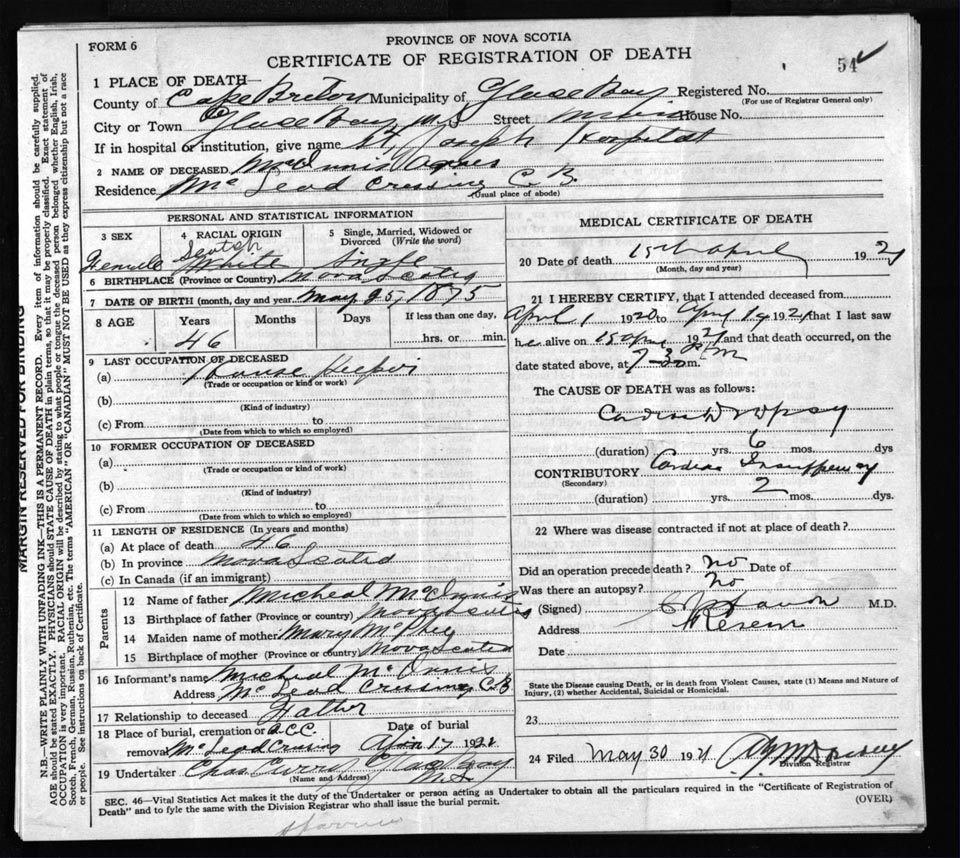 FORM 6
PROVINCE OF NOVA SCOTIA
CERTIFICATE OF REGISTRATION OF DEATH
54
1 PLACE OF DEATH—
County of Cape Breton Municipality of Glace Bay Registered No.
(For use of Registrar General only)
City or Town Glace Bay N.S Street Main House No.
If in hospital or institution, give name St. Joseph Hospital
2 NAME OF DECEASED McInnis Agnes
Residence McLead Crossing C.B.
(Usual place of abode)
PERSONAL AND STATISTICAL INFORMATION
3 SEX
Female
4 RACIAL ORIGIN
Scotch
White
5 Single, Married, Widowed or Divorced (Write the word)
Single
6 BIRTHPLACE (Province or Country) Nova Scotia
7 DATE OF BIRTH (month, day and year) May 25, 1875
8 AGE Years Months Days If less than one day,
46 hrs. or min.
9 LAST OCCUPATION OF DECEASED
(a) House Keeper
(Trade or occupation or kind of work)
(b)
(Kind of industry)
(c) From to
(Date from which to which so employed)
10 FORMER OCCUPATION OF DECEASED
(a)
(Trade or occupation or kind of work)
(b)
(Kind of industry)
(c) From to
(Date from which to which so employed)
11 LENGTH OF RESIDENCE (In years and months)
(a) At place of death 46
(b) In province Nova Scotia
(c) In Canada (if an immigrant)
Parents
12 Name of father Micheal McInnis
13 Birthplace of father (Province or country) Nova Scotia
14 Maiden name of mother Mary McPhee
15 Birthplace of mother (Province or country) Nova Scotia
16 Informant's name Micheal McInnis
Address McLead Crossing C.B
17 Relationship to deceased Father
18 Place of burial, cremation or R.C.C. Date of burial
removal McLead Crossing Apr 17 1921
19 Undertaker Chas Curry Glace Bay
(Name and Address) N.S.
MEDICAL CERTIFICATE OF DEATH
20 Date of death 15th April 1921
(Month, day and year)
21 I HEREBY CERTIFY, that I attended deceased from
April 1 1920 to April 14 1921 that I last saw
he alive on 15 Apr 1921 and that death occurred, on
date stated above, at 7-30 P.M m.
The CAUSE OF DEATH was as follows:
Cardiac Dropsy
(duration) yrs. 6 mos. dys
CONTRIBUTORY Cardiac Insufficiency
(Secondary)
(duration) yrs. 2 mos. dys.
22 Where was disease contracted if not at place of death?
Did an operation precede death? No Date of
Was there an autopsy? No
(Signed) M.D.
Address
Date
State the Disease causing Death, or in death from Violent Causes, state (1) Means and Nature of Injury, (2) whether Accidental, Suicidal or Homicidal.
23
24 Filed May 30 1921
Division Registrar
SEC. 46—Vital Statistics Act makes it the duty of the Undertaker or person acting as Undertaker to obtain all the particulars required in the "Certificate of Registration of
Death" and to fyle the same with the Division Registrar who shall issue the burial permit. (OVER)
MARGIN RESERVED FOR BINDING
N.B.—WRITE PLAINLY WITH UNFADING INK—THIS IS A PERMANENT RECORD. Every item of information should be carefully supplied.
AGE should be stated EXACTLY. PHYSICIANS should STATE CAUSE OF DEATH in plain terms, so that it may be properly classified. Exact statement of
OCCUPATION is very important. RACIAL ORIGIN will be described by stating to what people or tongue the deceased person belonged whether English, Irish,
Scotch, French, German, Russian, Ruthenian, etc. The terms "AMERICAN" OR "CANADIAN" MUST NOT BE USED as they express citizenship but not a race
or people. See instructions on back of Certificate.